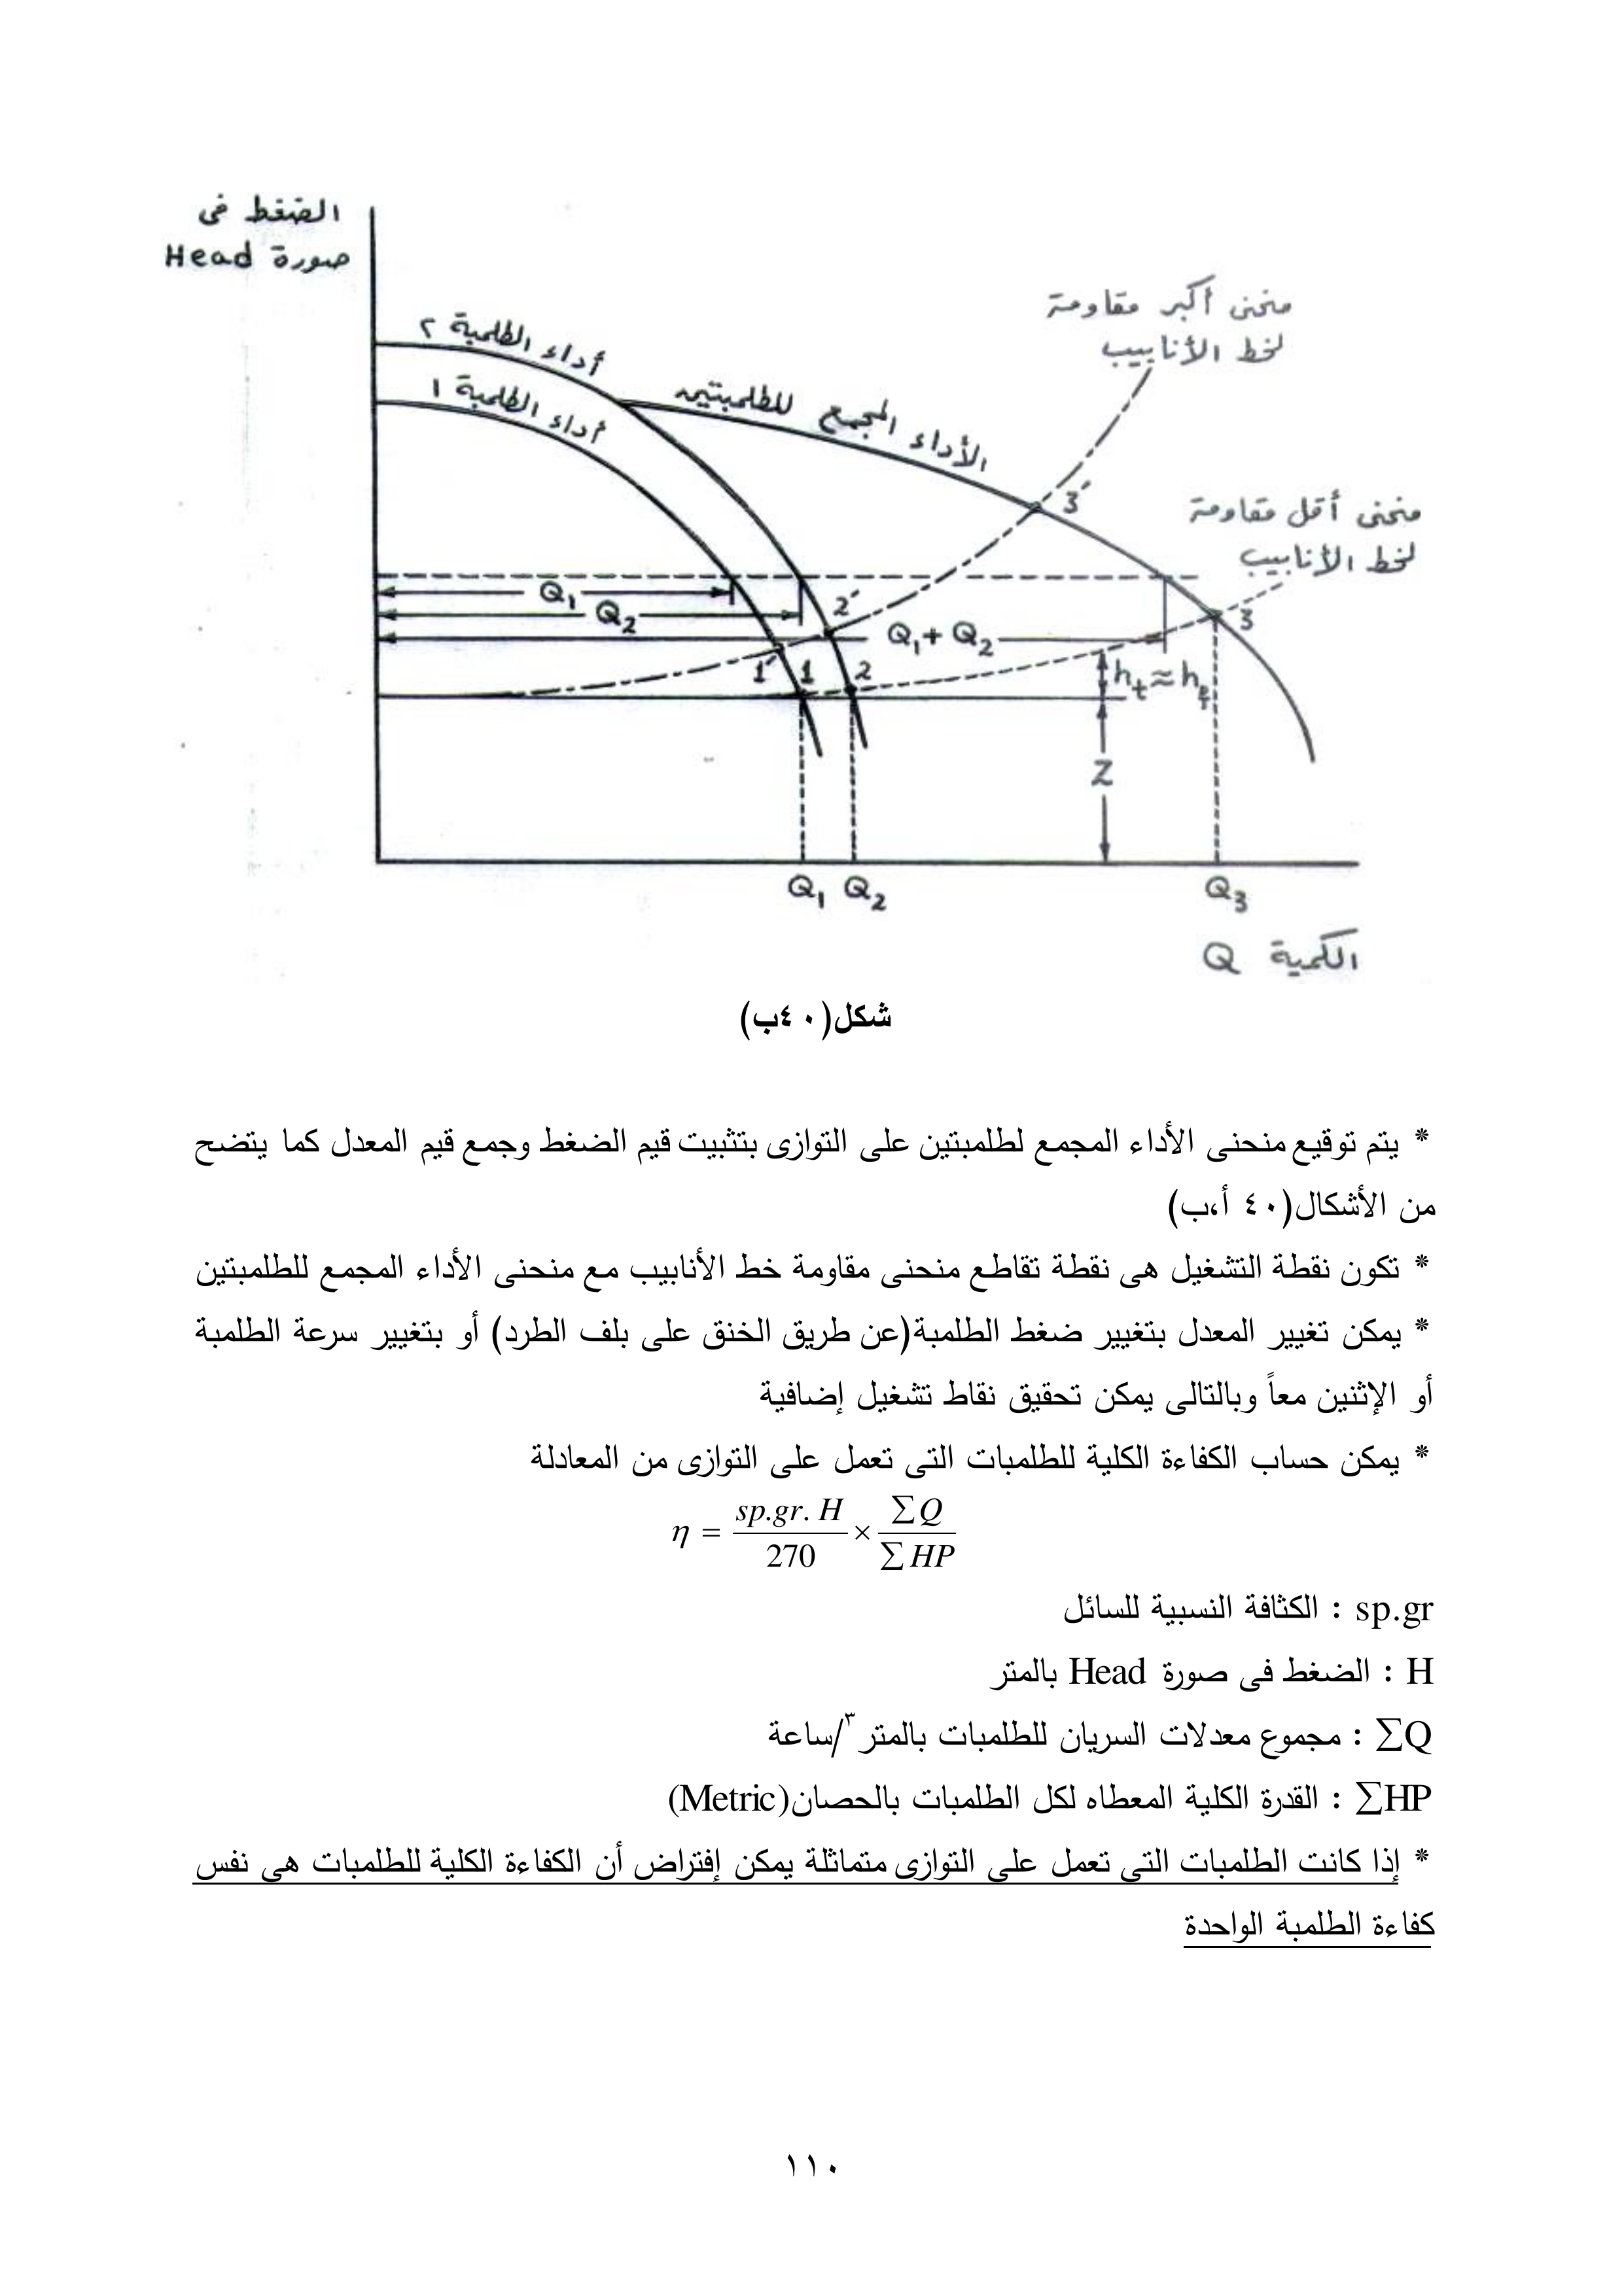 الضغط فى
صورة Head
منحنى أكبر مقاومة
لخط الأنابيب
أداء الطلمبة ٢
أداء الطلمبة ١
الأداء المجمع للطلمبتين
3′
منحنى أقل مقاومة
لخط الأنابيب
Q₁
Q₂
2′
Q₁+Q₂
3
1′
1
2
Z
Q₁
Q₂
Q₃
الكمية Q
شكل(٤٠ب)
* يتم توقيع منحنى الأداء المجمع لطلمبتين على التوازى بتثبيت قيم الضغط وجمع قيم المعدل كما يتضح
من الأشكال(٤٠ أ،ب)
* تكون نقطة التشغيل هى نقطة تقاطع منحنى مقاومة خط الأنابيب مع منحنى الأداء المجمع للطلمبتين
* يمكن تغيير المعدل بتغيير ضغط الطلمبة(عن طريق الخنق على بلف الطرد) أو بتغيير سرعة الطلمبة
أو الإثنين معاً وبالتالى يمكن تحقيق نقاط تشغيل إضافية
* يمكن حساب الكفاءة الكلية للطلمبات التى تعمل على التوازى من المعادلة
η = sp.gr. H / 270 × ∑Q / ∑HP
sp.gr : الكثافة النسبية للسائل
H : الضغط فى صورة Head بالمتر
∑Q : مجموع معدلات السريان للطلمبات بالمتر٣/ساعة
∑HP : القدرة الكلية المعطاه لكل الطلمبات بالحصان(Metric)
* إذا كانت الطلمبات التى تعمل على التوازى متماثلة يمكن إفتراض أن الكفاءة الكلية للطلمبات هى نفس
كفاءة الطلمبة الواحدة
١١٠